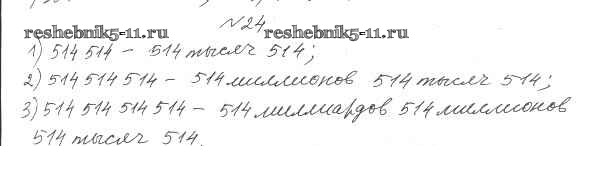 №24
reshebnik5-11.ru reshebnik5-11.ru
1) 514 514 - 514 тысяч 514;
2) 514 514 514 - 514 миллионов 514 тысяч 514;
3) 514 514 514 514 - 514 миллиардов 514 миллионов
514 тысяч 514.